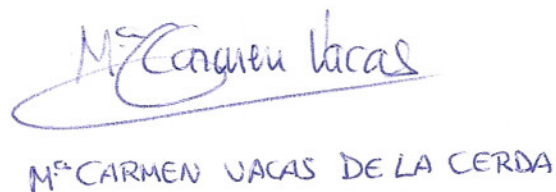 Mª Carmen Vacas
Mª CARMEN VACAS DE LA CERDA